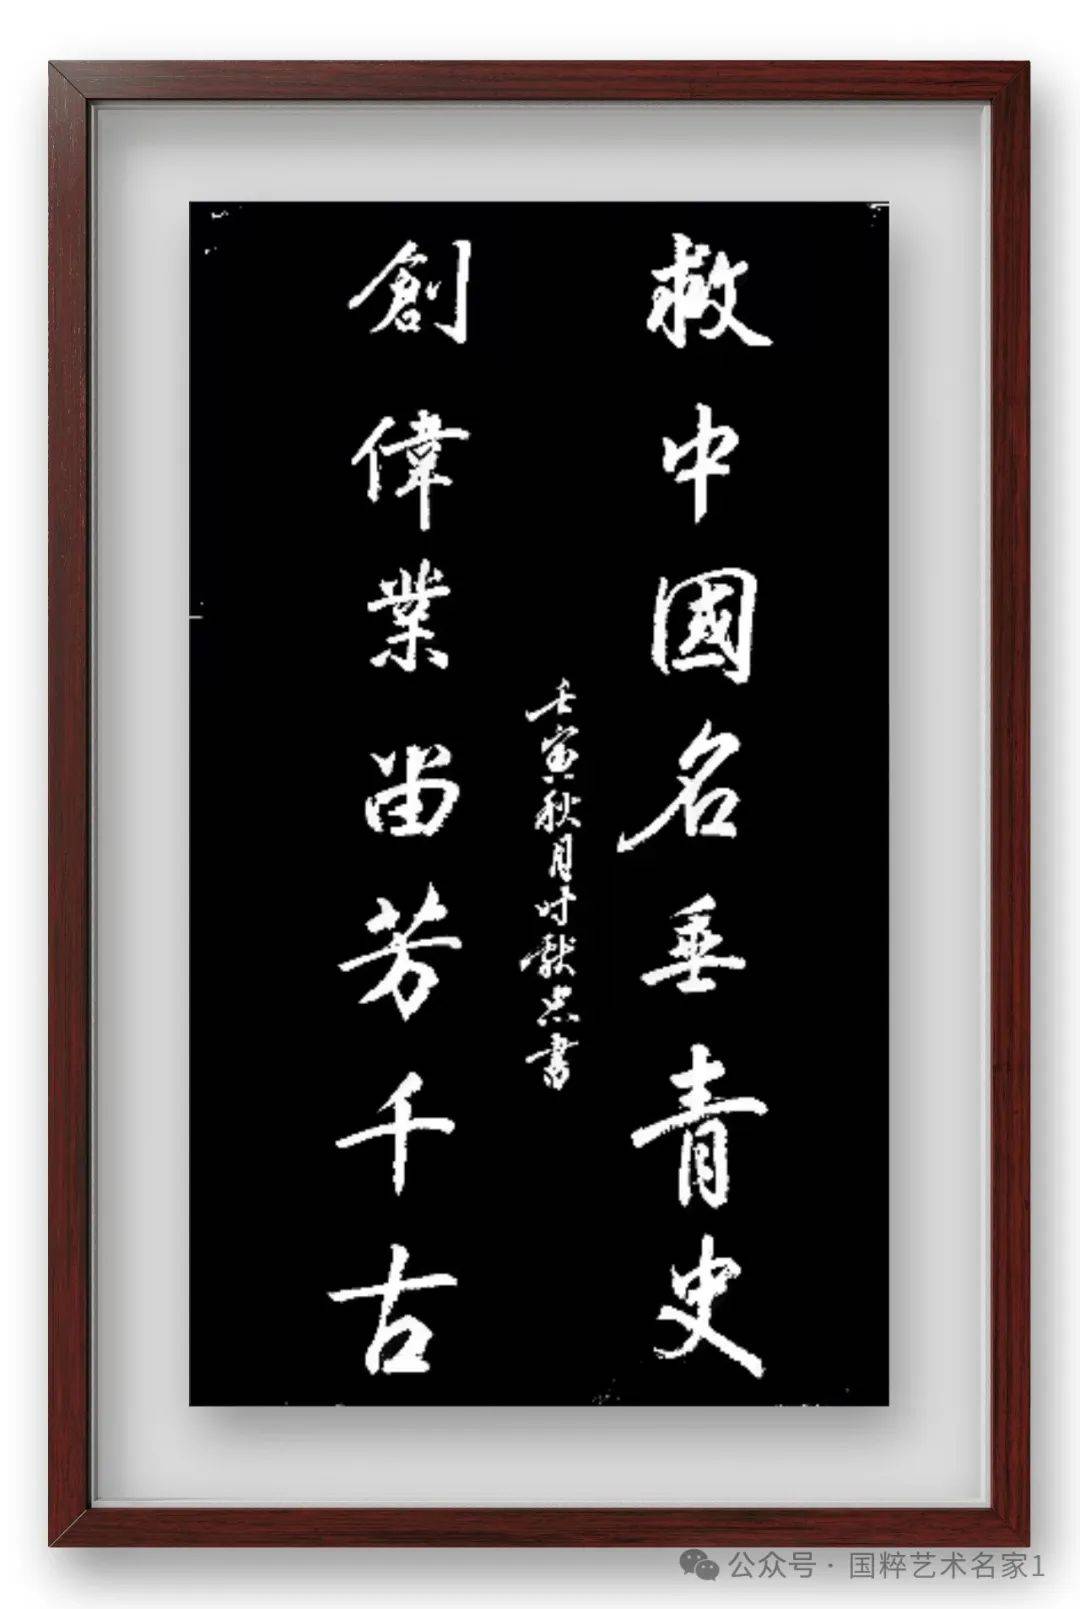 救中國名垂青史
創偉業畄芳千古
壬寅秋月时献忠書
公众号 · 国粹艺术名家1